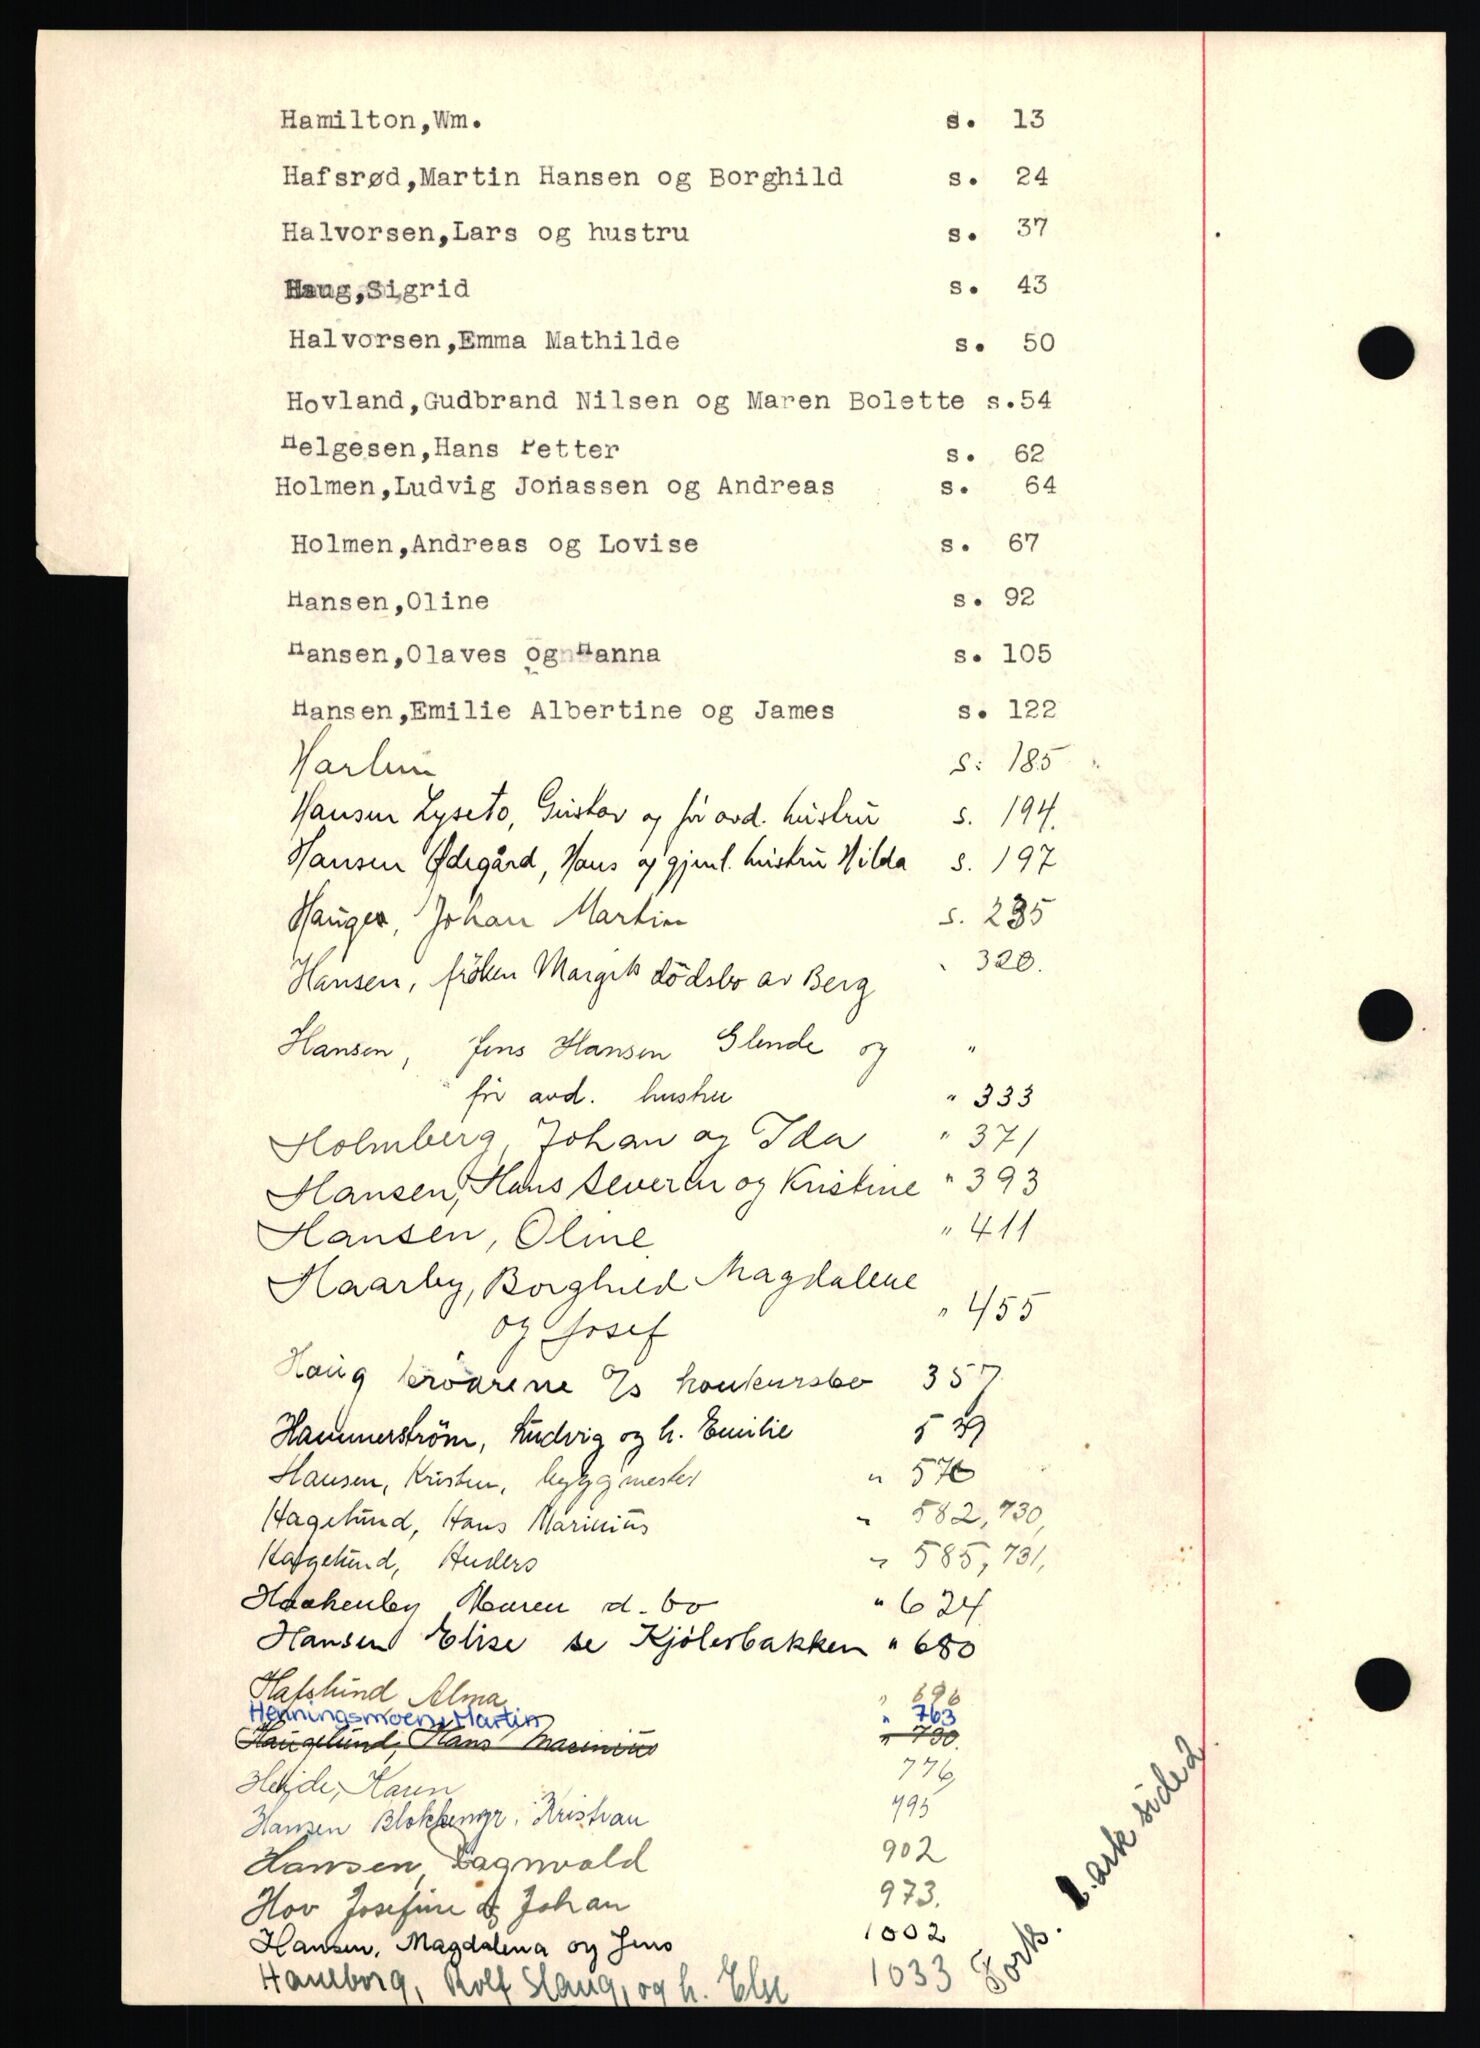 Hamilton,Wm. s. 13
Hafsrød,Martin Hansen og Borghild s. 24
Halvorsen,Lars og hustru s. 37
Haug,Sigrid s. 43
Halvorsen,Emma Mathilde s. 50
Hovland,Gudbrand Nilsen og Maren Bolette s.54
Helgesen,Hans Petter s. 62
Holmen,Ludvig Jonassen og Andreas s. 64
Holmen,Andreas og Lovise s. 67
Hansen,Oline s. 92
Hansen,Olaves og Hanna s. 105
Hansen,Emilie Albertine og James s. 122
s: 185
Hansen Lyseto, Gustav og før avd. hustru s. 194.
Hansen Ødegård, Hans og gjenl. hustru Hilda s. 197
Hauger, Johan Martin s. 235
Hansen, fröken Margit dödsbo av Berg 320.
Hansen, Jens Hansen Glende og "
før avd. hustru " 333
Holmberg, Johan og Ida " 371
Hansen, Hans Severin og Kristine " 393
Hansen, Oline " 411
Haarby, Borghild Magdalene
og Josef " 455
Haug A/s konkursbo 357
Hammerström, Ludvig og h. Emilie 539
Hansen, Kristen, byggmester " 576
Hagelund, Hans Marinius " 582, 730,
Hagelund, Anders " 585, 731,
Haakenby Maren d. bo " 624
Hansen Elise se Kjølesbakken " 680
Hafslund Alma " 696
Henningsmoen, Martin " 763
Haugelund, Hans Marinius " 730.
Heide, Karen 776,
Hansen Blokkengr. Kristian 795
Hansen, Dagnvald 902
Hov Josefine og Johan 973.
Hansen, Magdalena og Jens 1002
Haneborg, Rolf Slaug, og h. Else 1033
Forts. 2. ark side 2